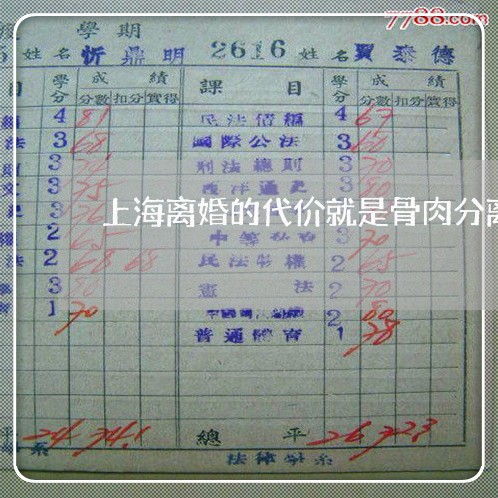 7788.com
學期
姓名 忻鼎明 2616 姓名 賈泰德
目 學分 成績 課目 學分 成績
分數 扣分 實得 分數 扣分 實得
4 81 民法債編 4 67
法 3 68 國際公法 3 60
3 刑法總則 3 70
3 75 西洋通史 3 80
上海离婚的代价就是骨肉分离
2 65 3 70
法 2 68 68 民法物權 2 65
3 80 憲法 2 70
1 70 2 80
普通體育 1 78
24 74.1 總平 26 72.3
系 法律學系